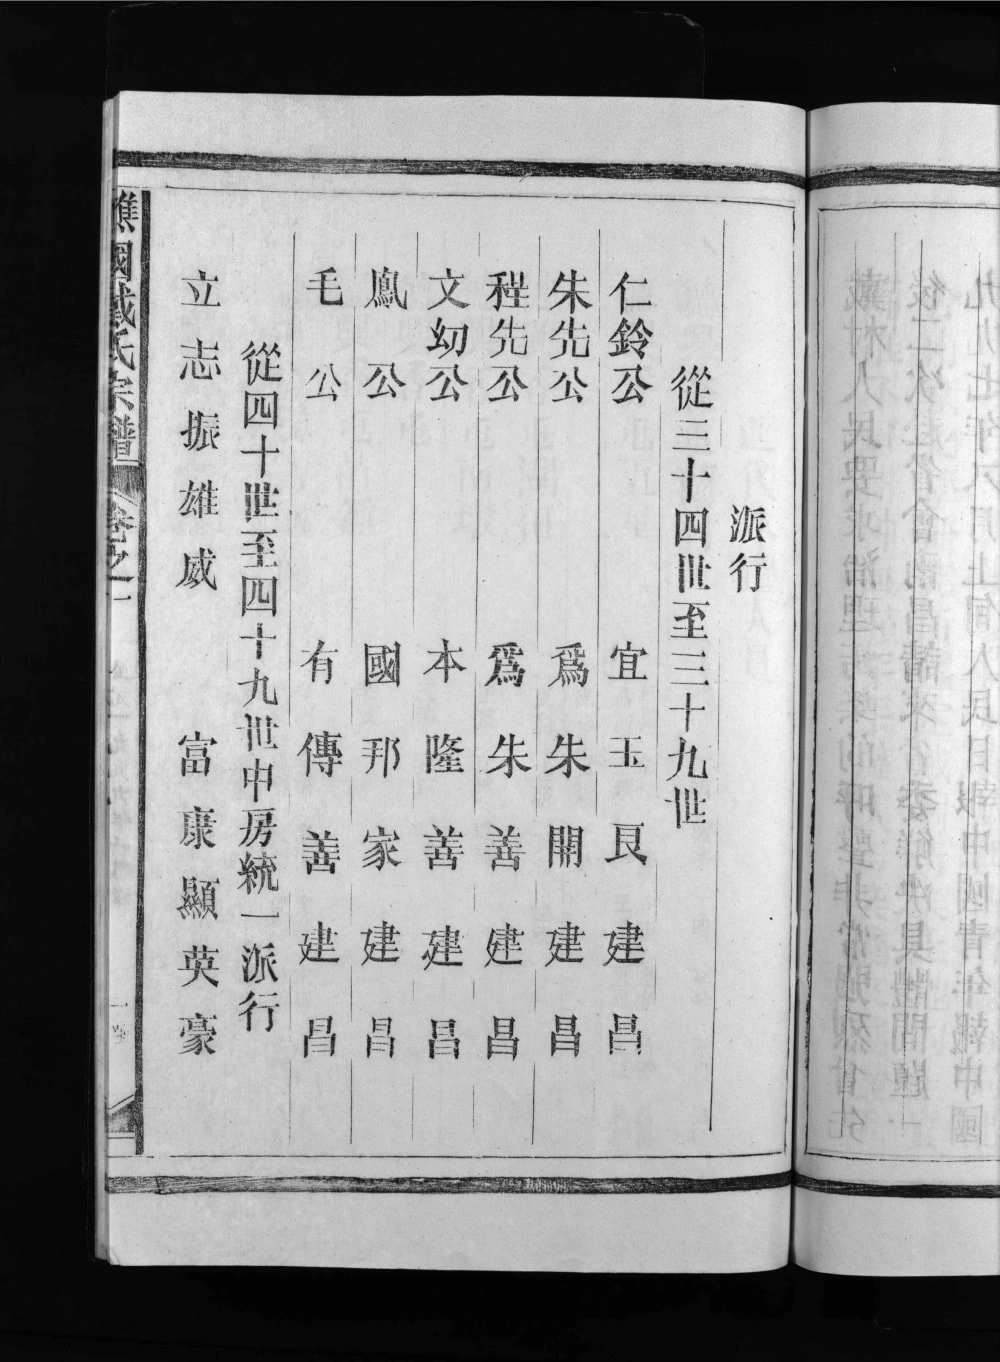 派行
從三十四世至三十九世
仁鈴公 宜玉良建昌
朱先公 為朱開建昌
程先公 為朱善建昌
文幼公 本隆善建昌
鳳公 國邦家建昌
毛公 有傳善建昌
從四十世至四十九世中房統一派行
立志振雄威 富康顯英豪
譙國戴氏宗譜 卷之一